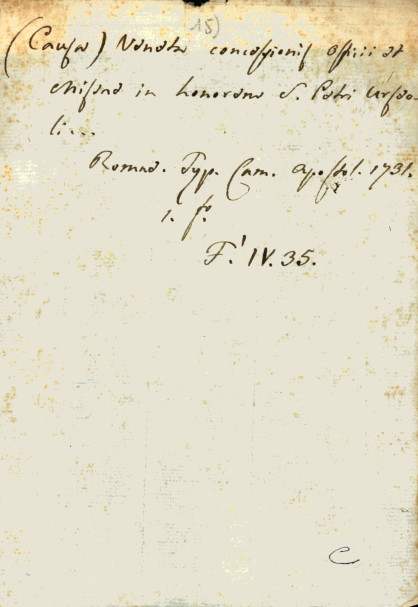 18)
(Causa) Veneta concessionis officii et
Missae in honorem S. Petri Urseo-
li...
Romae. Typ. Cam. Apostol. 1731.
1. f.º
F.' IV. 35.
C